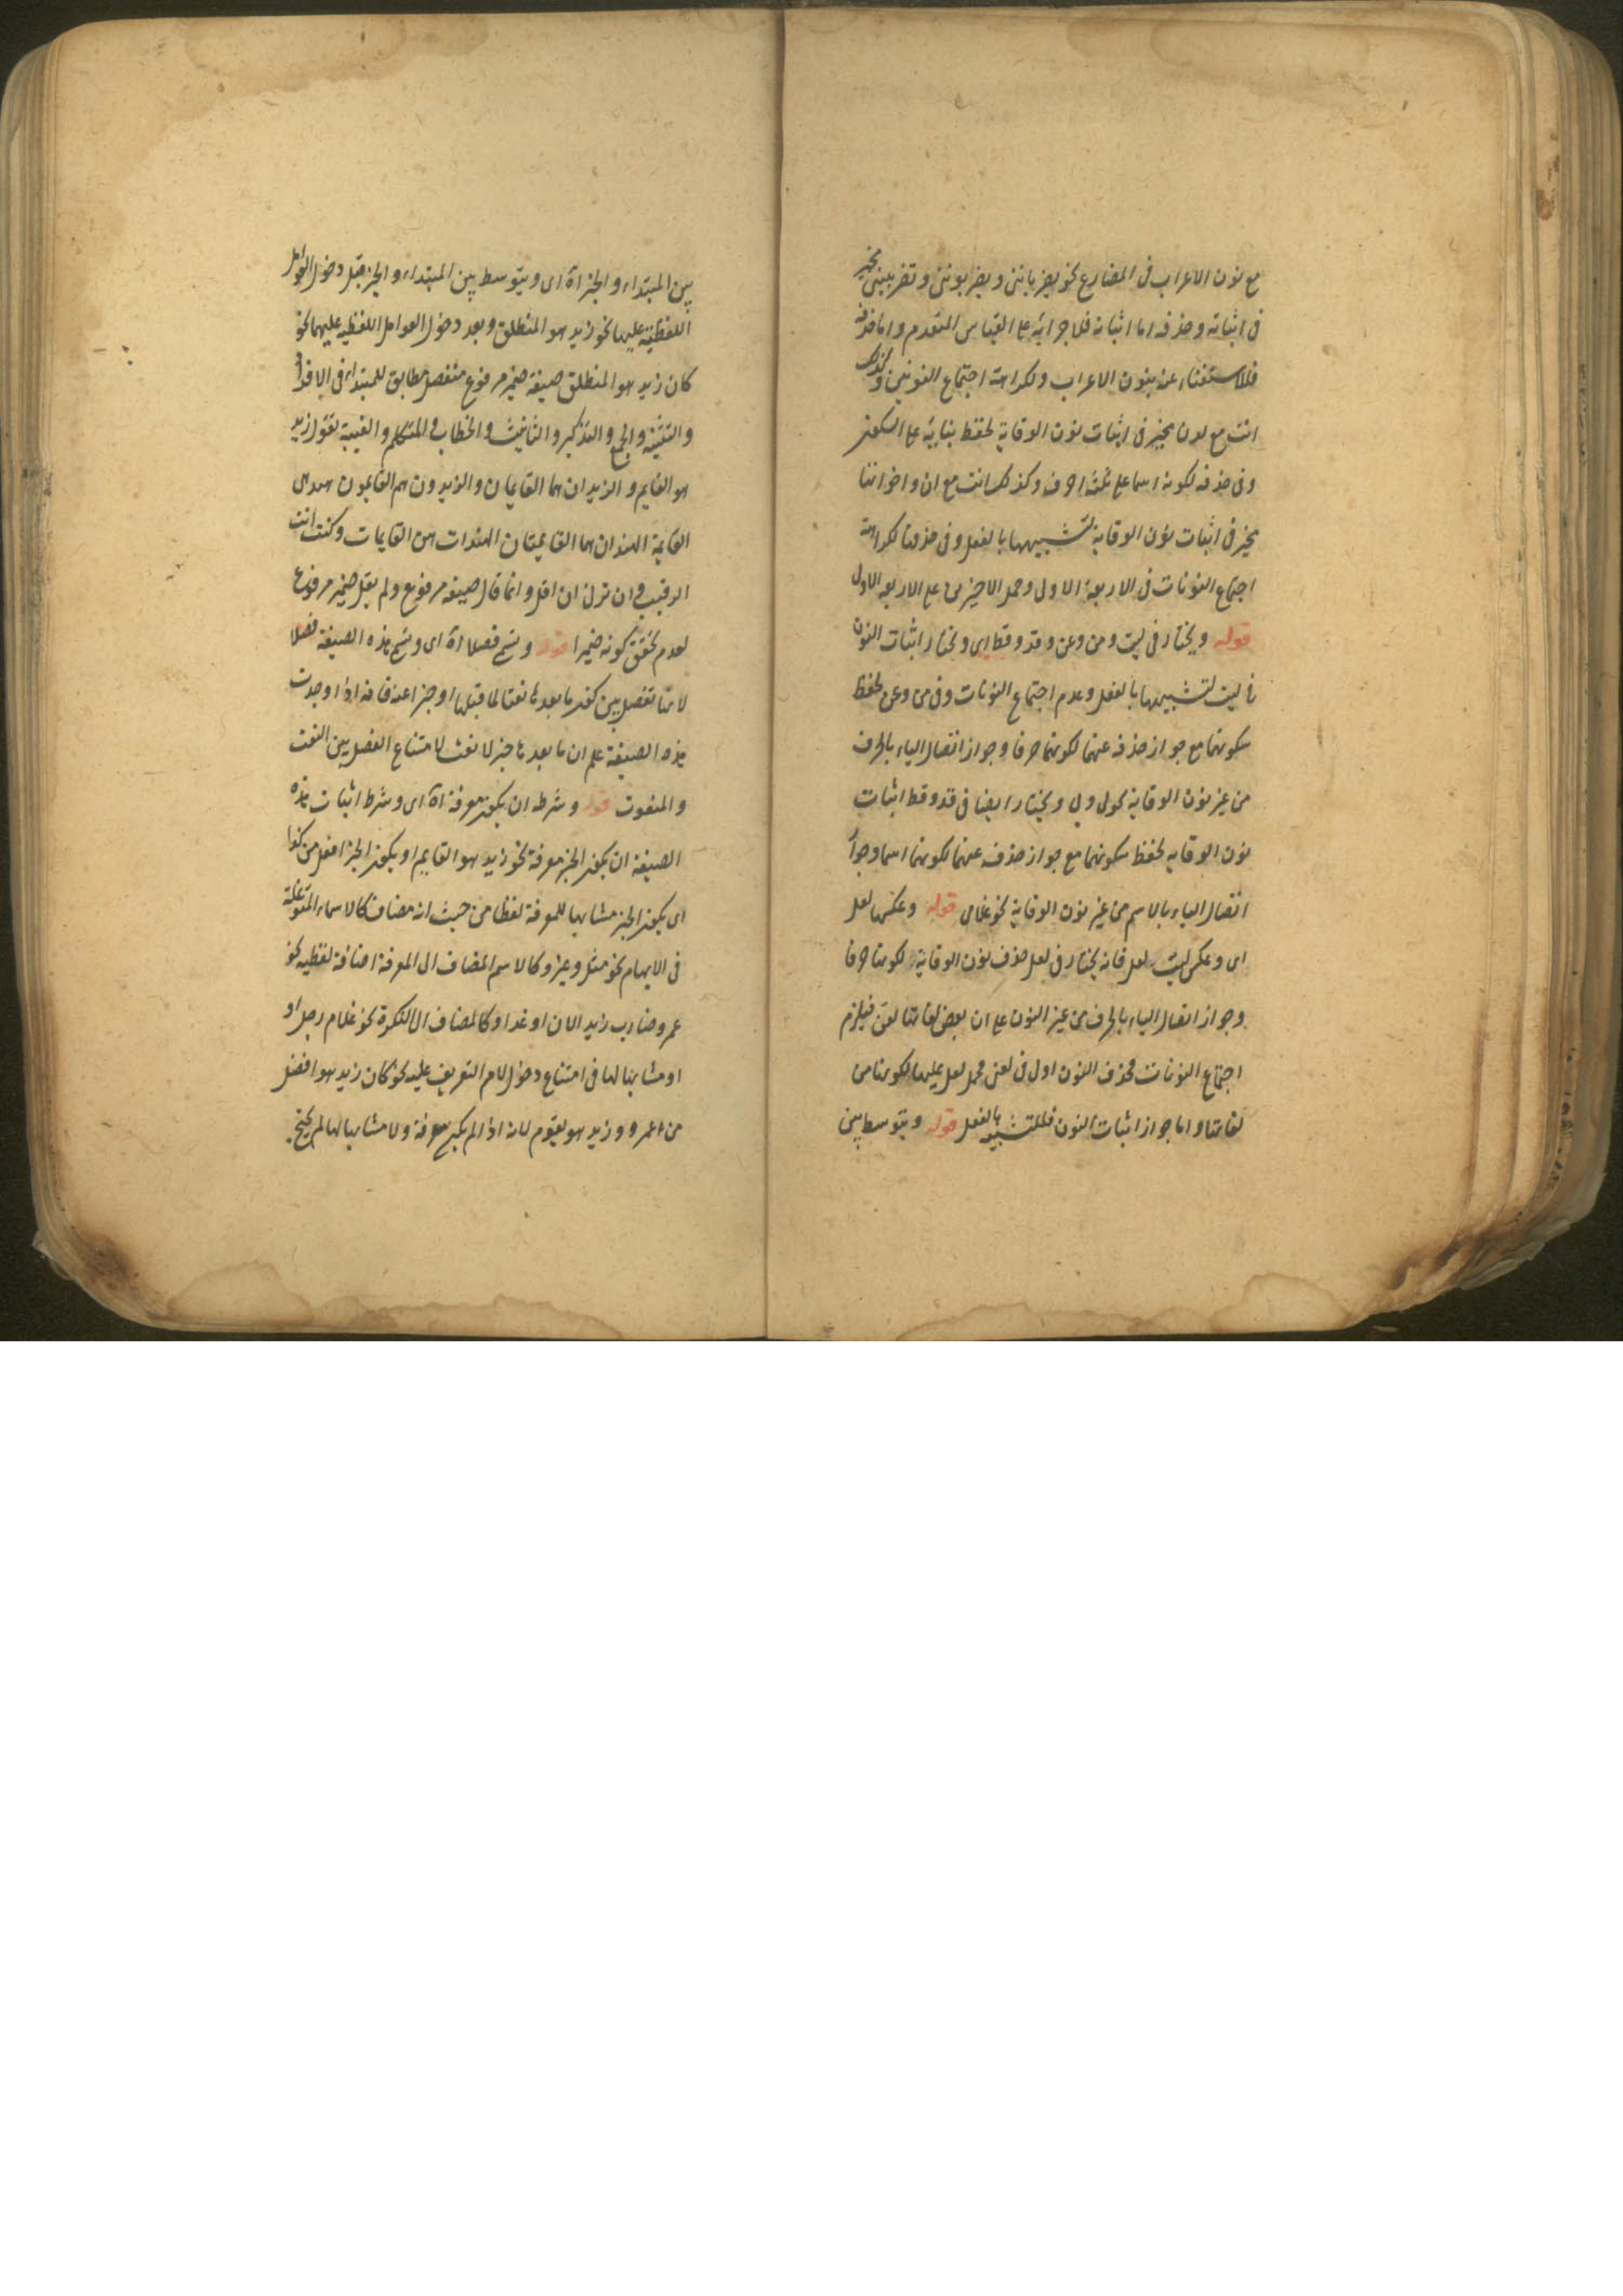 مع نون الاعراب فى المضارع نحو يضرباننى ويضربوننى وتضربيننى مخير
فى اثباته وحذفه اما اثباته فلاجرائه على القياس المتقدم واما حذفه
فللاستغناء عنه بنون الاعراب ولكراهة اجتماع النونين وكذلك
انت مع لدن مخير فى اثبات نون الوقاية لحفظ بنائه على السكون
وفى حذفه لكونه اسما على ثلثة احرف وكذلك انت مع ان واخواتها
مخير فى اثبات نون الوقاية لتشبيهها بالفعل وفى حذفها لكراهة
اجتماع النونات فى الاربعة الاول وحمل الاخيرين على الاربعة الاول
قوله ويختار فى ليت ومن وعن وقد وقط اى ويختار اثبات النون
فى ليت لتشبيهها بالفعل وعدم اجتماع النونات وفى من وعن لحفظ
سكونهما مع جواز حذفه عنهما لكونهما حرفا وجواز اتصال الياء بالحرف
من غير نون الوقاية نحو لى وبى ويختار ايضا فى قد وقط اثبات
نون الوقاية لحفظ سكونهما مع جواز حذفه عنهما لكونهما اسما وجواز
اتصال الياء بالاسم من غير نون الوقاية نحو غلامى قوله وعكسها لعل
اى وعكس ليت لعل فانه يختار فى لعل حذف نون الوقاية لكونها حرفا
وجواز اتصال الياء بالحرف من غير النون على ان بعض لغاتها لعن فيلزم
اجتماع النونات فحذف النون اولى فى لعن فحمل لعل عليها لكونها من
لغاتها واما جواز اثبات النون فللتشبيه بالفعل قوله ويتوسط بين
بين المبتداء والخبر اه اى ويتوسط بين المبتداء والخبر قبل دخول العوامل
اللفظية عليها نحو زيد هو المنطلق وبعد دخول العوامل اللفظية عليهما نحو
كان زيد هو المنطلق صيغة ضمير مرفوع منفصل مطابق للمبتداء فى الافراد
والتثنية والجمع والتذكير والتانيث والخطاب والمتكلم والغيبة تقول زيد
هو القايم والزيدان هما القايمان والزيدون هم القايمون هند هى
القايمة الهندان هما القايمتان الهندات هن القايمات وكنت انت
الرقيب وان ترن انا اقل وانما قال صيغة مرفوع ولم يقل ضمير مرفوع
لعدم تحقق كونه ضميرا قوله ويسمى فصلا اه اى ويسمى هذه الصيغة فصلا
لانها تفصل بين كون ما بعدها نعتا لما قبلها او خبرا عنه فانه اذا وجدت
هذه الصيغة علم ان ما بعدها خبر لا نعت لامتناع الفصل بين النعت
والمنعوت قوله وشرطه ان يكون معرفة اه اى وشرط اثبات هذه
الصيغة ان يكون الخبر معرفة نحو زيد هو القايم او يكون الخبر افعل من كذا
اى يكون الخبر مشابها للمعرفة لفظا من حيث انه مضاف كالاسماء المتوغلة
فى الابهام نحو مثل وغير وكالاسم المضاف الى المعرفة اضافة لفظية نحو
عمرو ضارب زيد الان او غدا وكالمضاف الى النكرة نحو غلام رجل او
او مشابها لها فى امتناع دخول لام التعريف عليه نحو كان زيد هو افضل
من عمرو وزيد هو يقوم لانه اذا لم يكن معرفة ولا مشابها لها لم يحتج